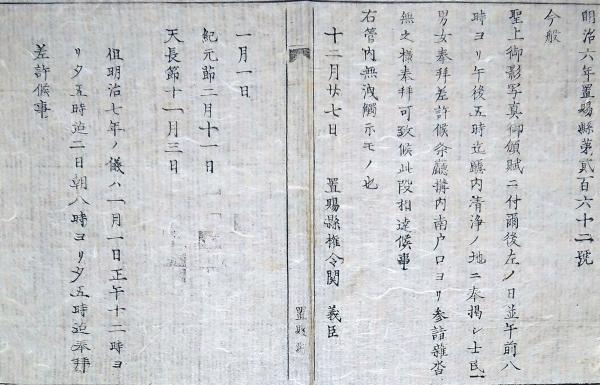 明治六年置賜縣第貳百六十二號
今般
聖上御影写真御頒賦ニ付爾後左ノ日並午前八
時ヨリ午後五時迄廳内清浄ノ地ニ奉掲シ士民一
男女奉拜差許候条廳搆内南户口ヨリ参詣雜沓
無之様奉拜可致候此段相達候事
右管内無洩觸示モノ也
十二月廿七日
置賜縣権令関 義臣
置賜縣
一月一日
紀元節二月十一日
天長節十一月三日
但明治七年ノ儀ハ一月一日正午十二時ヨ
リ夕五時迄二日朝八時ヨリ夕五時迄奉拜
差許候事